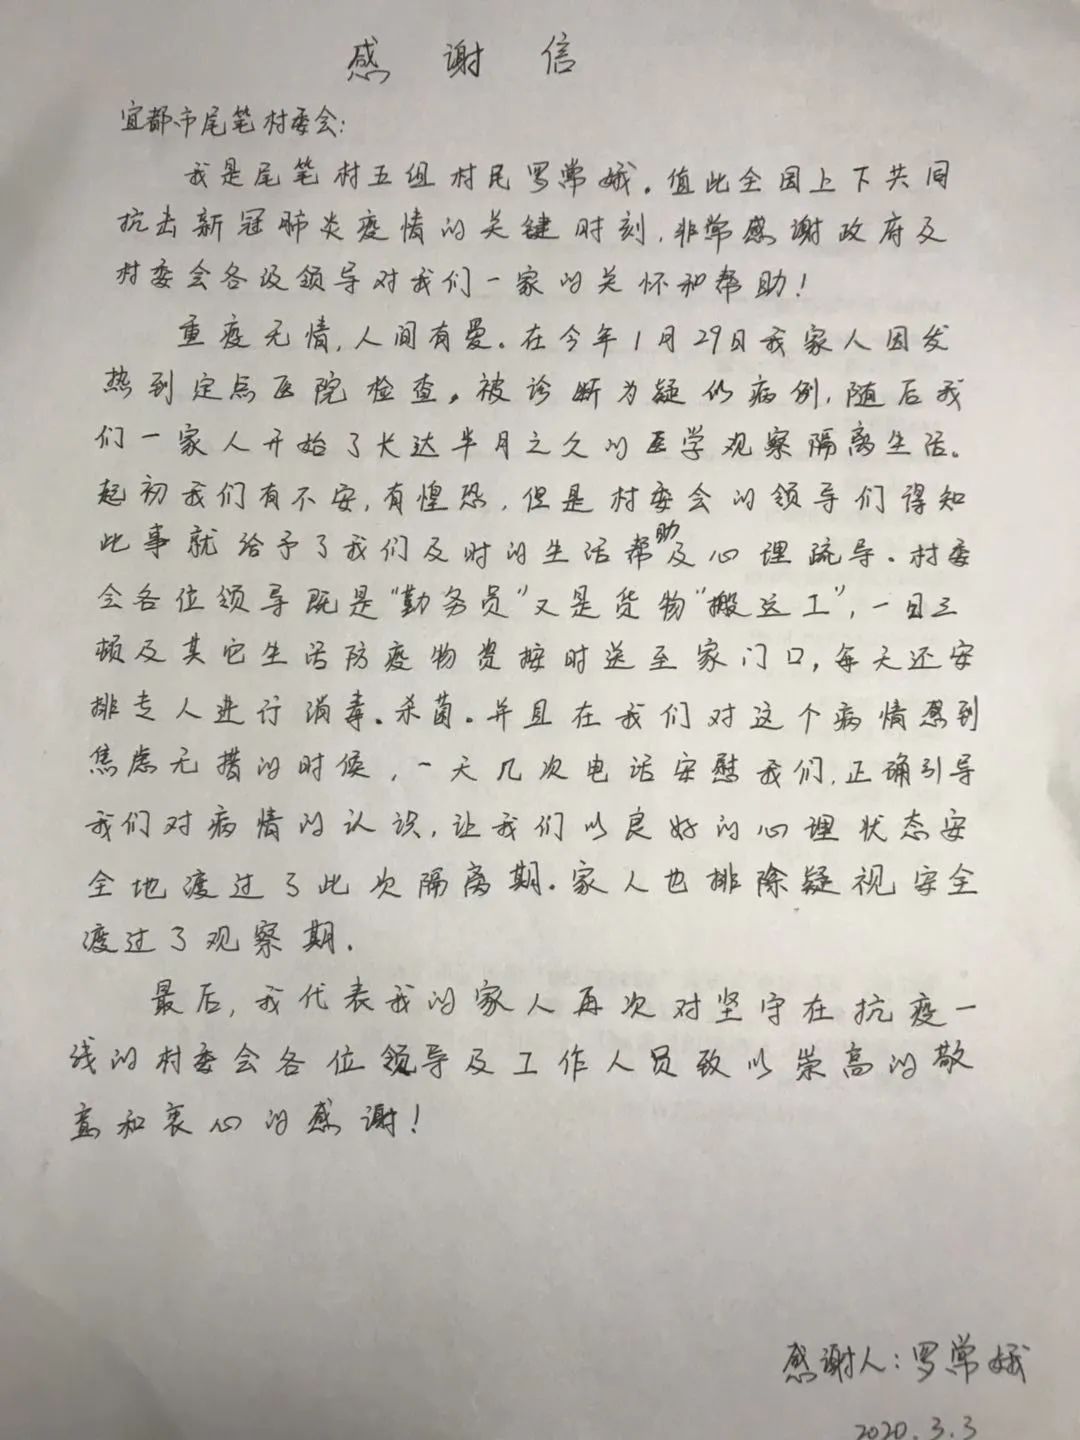 感谢信
宜都市尾笔村委会:
我是尾笔村五组村民罗常娥。值此全国上下共同
抗击新冠肺炎疫情的关键时刻,非常感谢政府及
村委会各级领导对我们一家的关怀和帮助!
重疫无情,人间有爱。在今年1月29日我家人因发
热到定点医院检查。被诊断为疑似病例,随后我
们一家人开始了长达半月之久的医学观察隔离生活。
起初我们有不安,有惶恐,但是村委会的领导们得知
此事就给予了我们及时的生活帮助及心理疏导。村委
会各位领导既是“勤务员”又是货物“搬运工”,一日三
顿及其它生活防疫物资按时送至家门口,每天还安
排专人进行消毒。杀菌。并且在我们对这个病情感到
焦虑无措的时候,一天几次电话安慰我们,正确引导
我们对病情的认识,让我们以良好的心理状态安
全地渡过了此次隔离期。家人也排除疑视安全
渡过了观察期.
最后,我代表我的家人再次对坚守在抗疫一
线的村委会各位领导及工作人员致以崇高的敬
意和衷心的感谢!
感谢人:罗常娥
2020.3.3